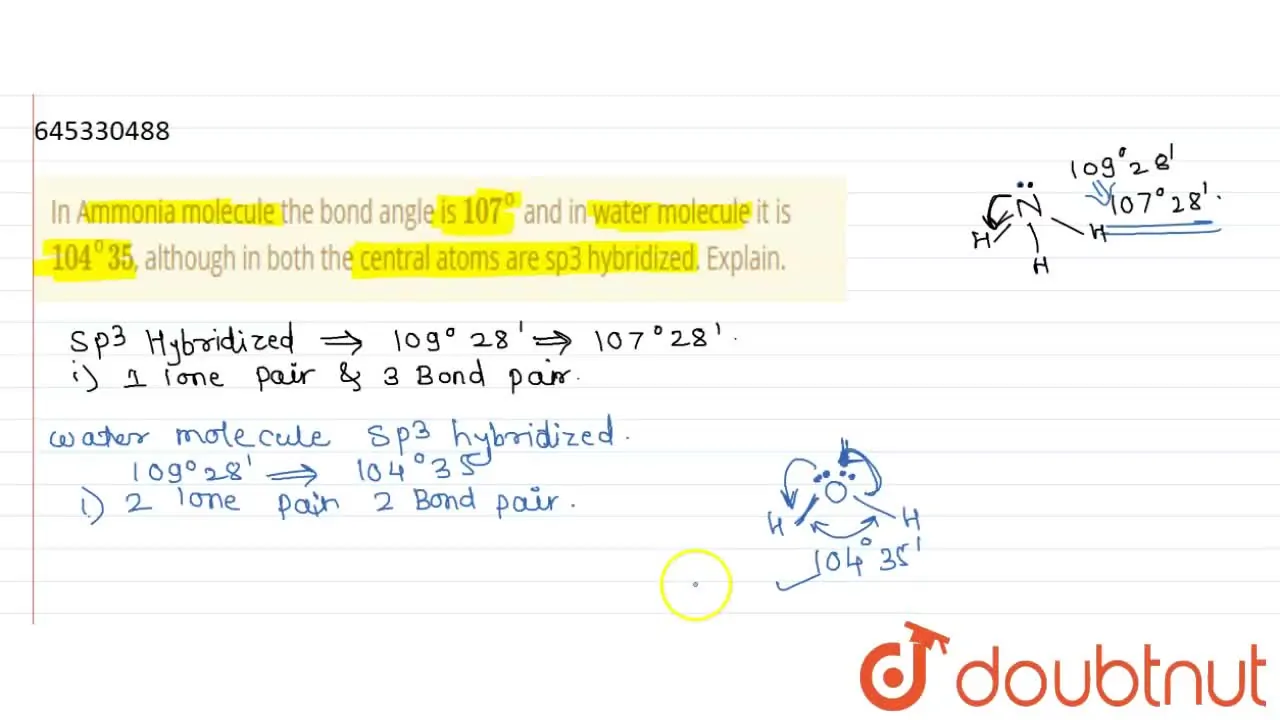 645330488
In Ammonia molecule the bond angle is 107° and in water molecule it is
104°35, although in both the central atoms are sp3 hybridized. Explain.
109°28'
N
107°28'.
H
H
H
Sp3 Hybridized ⟹ 109° 28' ⟹ 107°28'.
i) 1 lone pair & 3 Bond pair.
water molecule Sp3 hybridized.
109°28' ⟹ 104°35
i) 2 lone pair 2 Bond pair.
O
H
H
104°35'
doubtnut